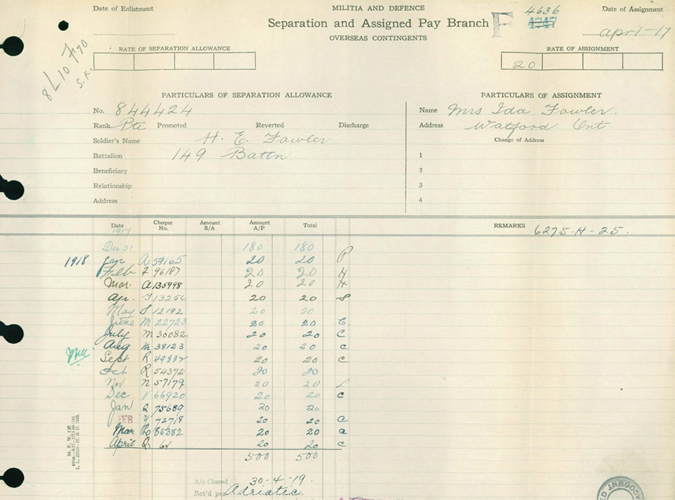 Date of Enlistment
MILITIA AND DEFENCE
Separation and Assigned Pay Branch
OVERSEAS CONTINGENTS
F 4636
Date of Assignment
April-17
RATE OF SEPARATION ALLOWANCE
RATE OF ASSIGNMENT
20
PARTICULARS OF SEPARATION ALLOWANCE
PARTICULARS OF ASSIGNMENT
No. 844424
Name Mrs Ida Fowler
Rank Pte Promoted Reverted Discharge
Address Watford Ont
Soldier's Name H. E. Fowler
Change of Address
Battalion 149 Battn
1
Beneficiary
2
Relationship
3
Address
4
Date Cheque No. Amount S/A Amount A/P Total REMARKS 6275-H-25.
1917
Dec 31 180 180
1918 Jan A 59165 20 20 P
Feb 96187 20 20 H
Mar. A 135998 20 20 H
Apr. 13256 20 20
May 12192 20 20
June M 22723 20 20 C
July M 30082 20 20 C
Aug M 38123 20 20 C
Sept R 49882 20 20 C
Oct R 54372 20 20
Nov N 57179 20 20
Dec 66920 20 20 C
Jan 75689 20 20
FEB 72718 20 20 a
Mar 85382 20 20 a
April 20 20 C
500 500
A/c Closed 30-4-19.
Ret'd per Adriatic